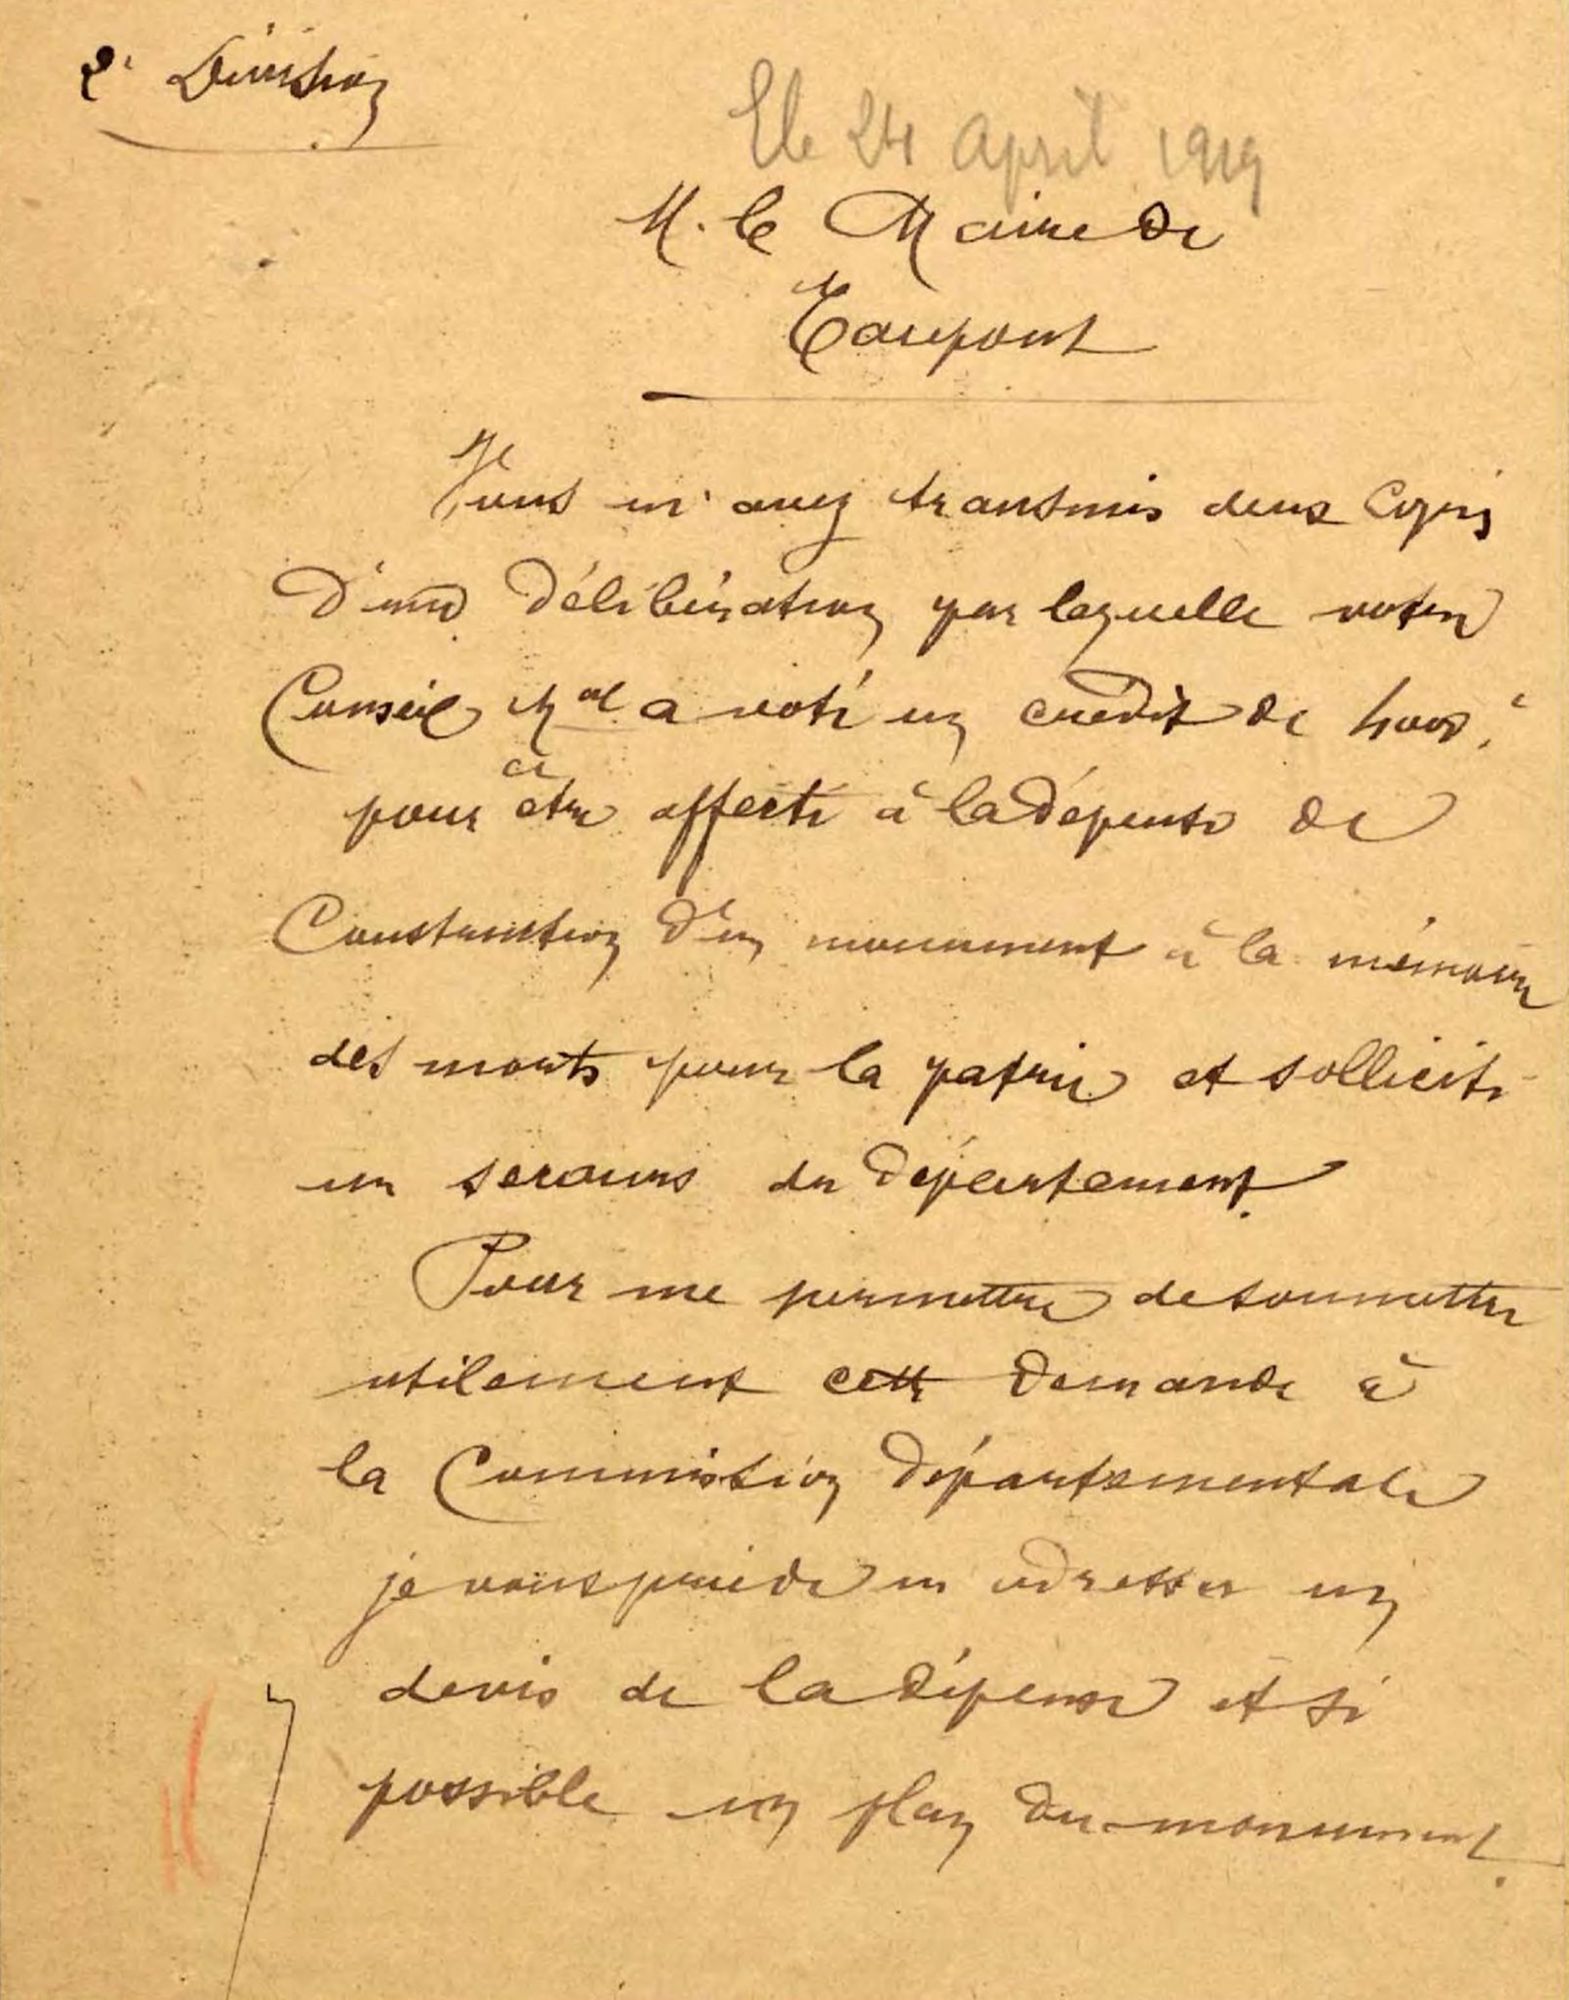 2e Division
24 april 1919
M. le Maire de
Taupont
Vous m'avez transmis deux copies
d'une délibération par laquelle votre
Conseil Mal a voté un crédit de 4000f
pour être affecté à la dépense de
Construction d'un monument à la mémoire
des morts pour la patrie et sollicite
un secours du département.
Pour me permettre de soumettre
utilement cette demande à
la Commission départementale
je vous prie de m'adresser un
devis de la dépense et si
possible un plan du monument.